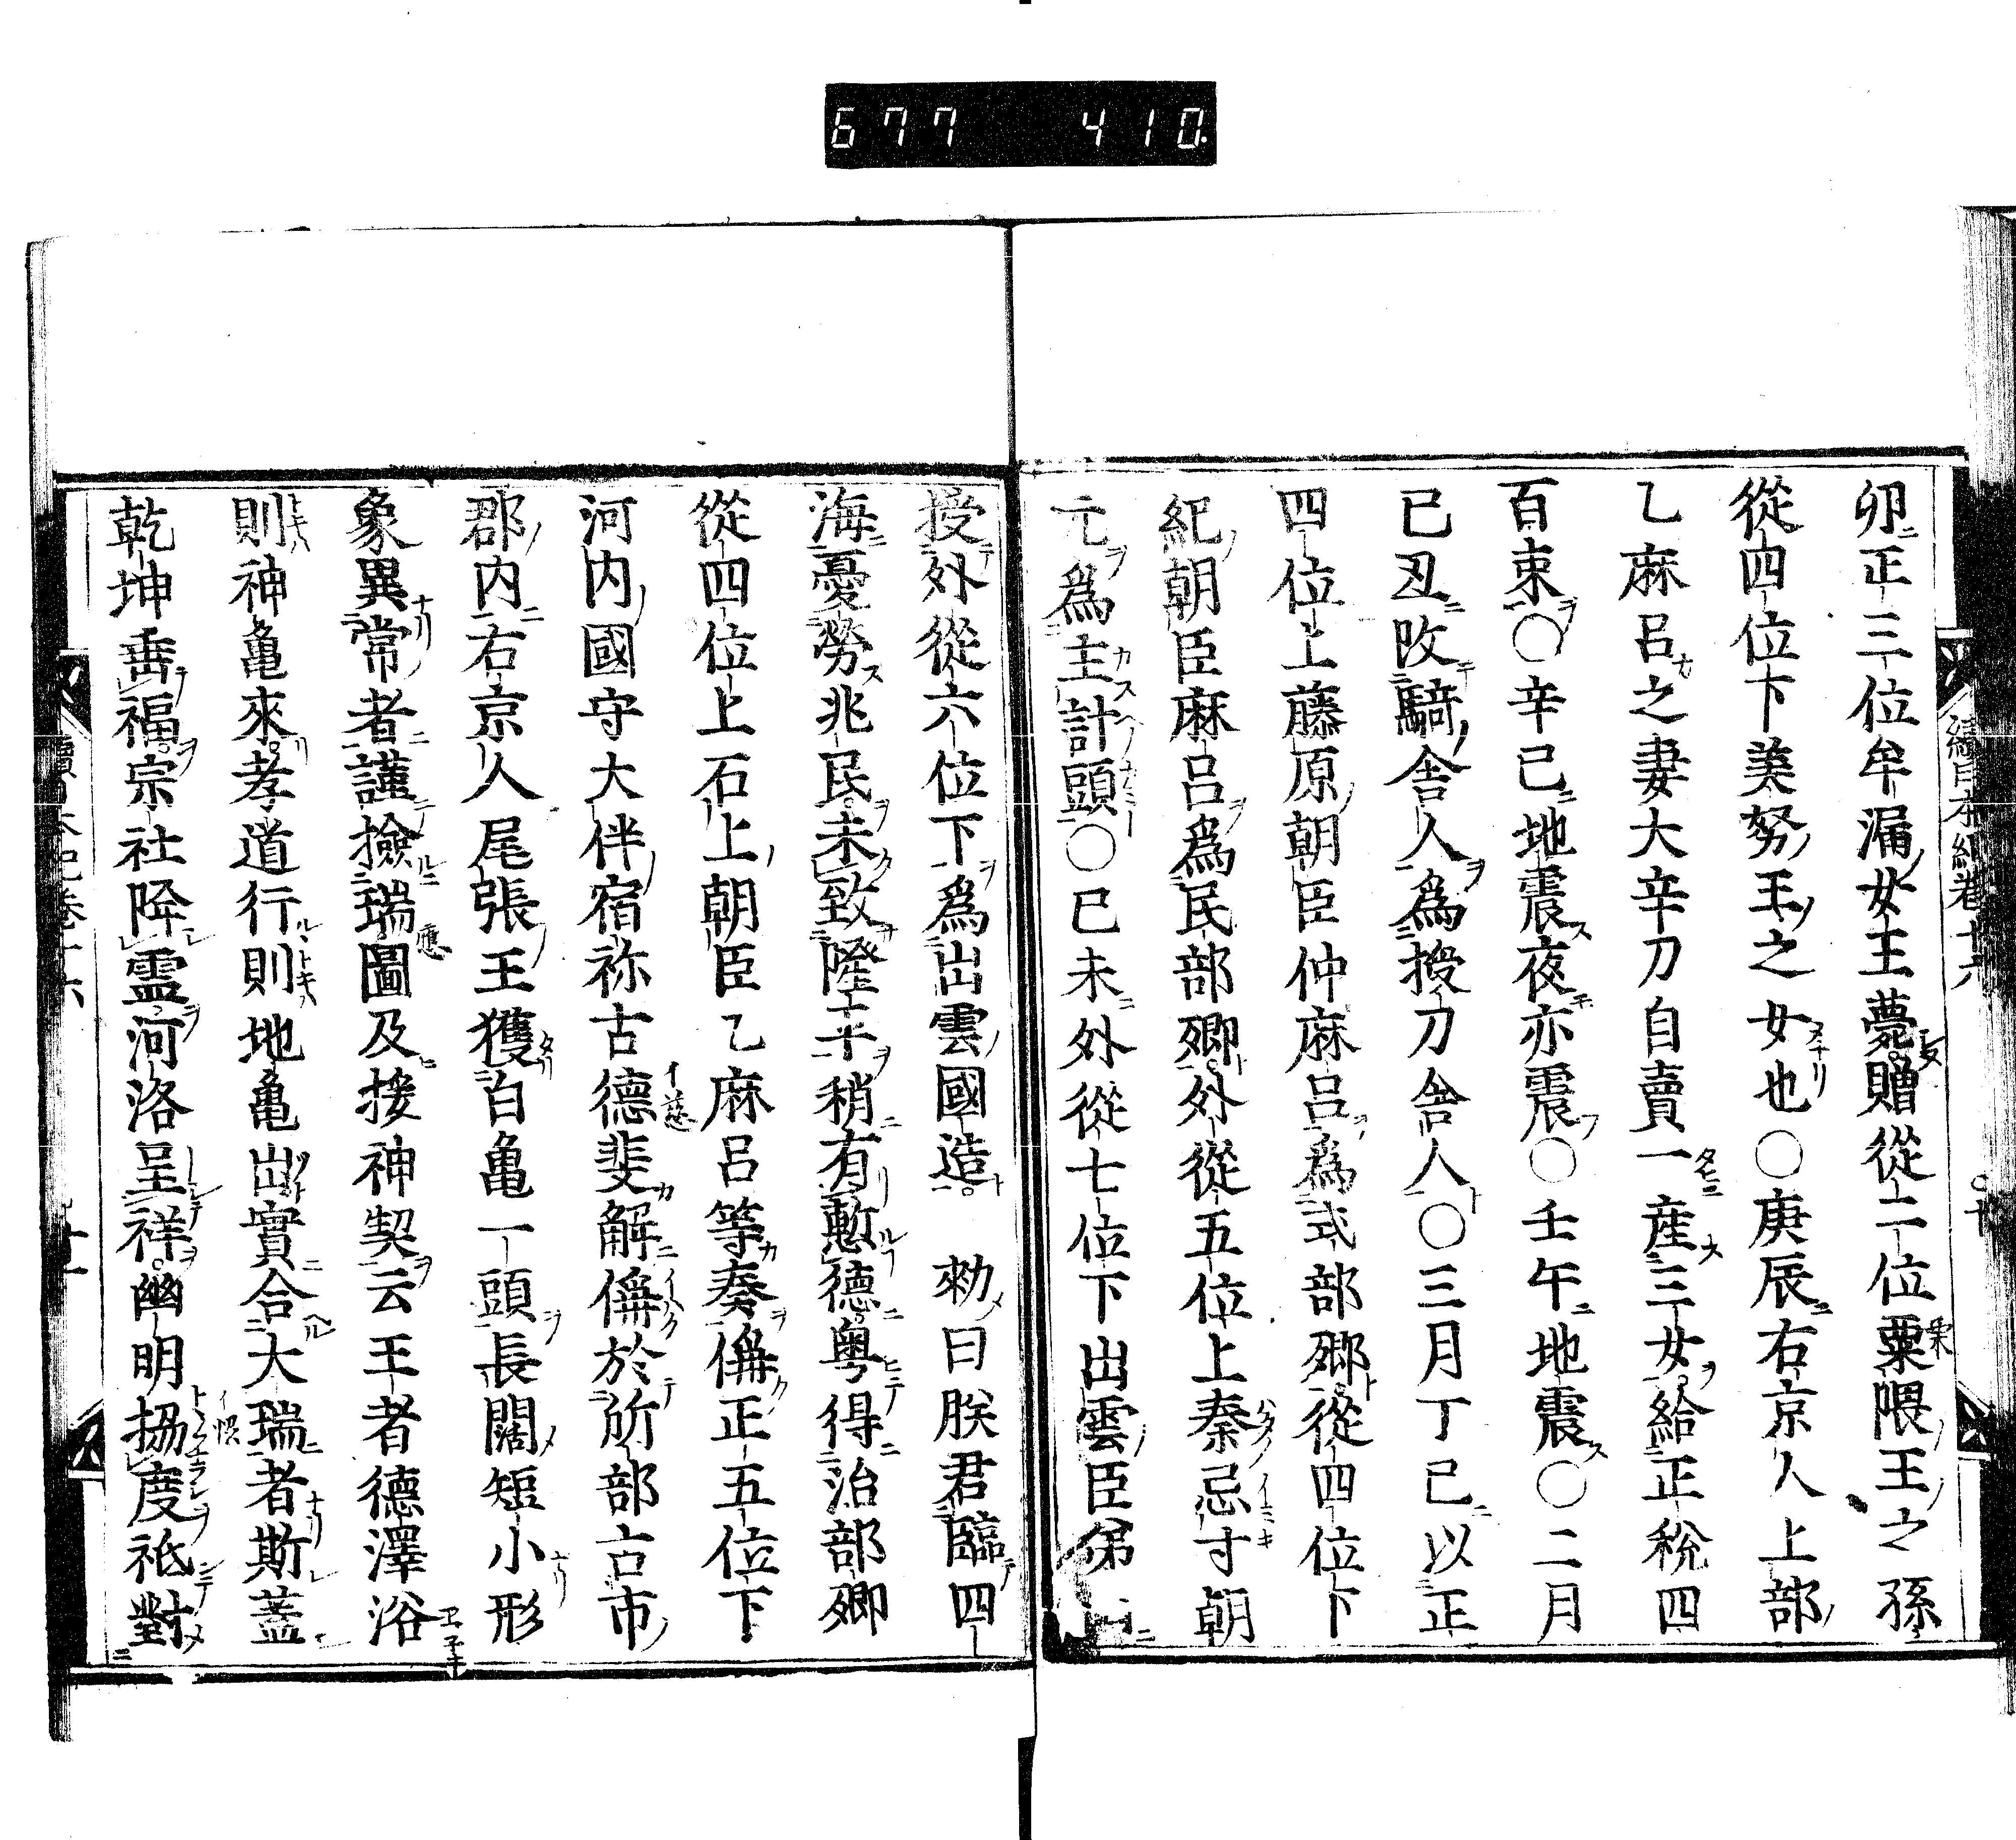 677 410
卯正三位牟漏女王薨贈從二位栗隈王之孫
從四位下美努王之女也○庚辰右京人上部
乙麻呂之妻大辛刀自賣一產三女給正稅四
百束○辛巳地震夜亦震○壬午地震○二月
己丑改騎舍人爲授刀舍人○三月丁巳以正
四位上藤原朝臣仲麻呂爲式部卿從四位下
紀朝臣麻呂爲民部卿外從五位上秦忌寸朝
元爲主計頭○已未外從七位下出雲臣弟山
授外從六位下爲出雲國造 勑曰朕君臨四
海憂勞兆民未致隆平稍有慙德粤得治部卿
從四位上石上朝臣乙麻呂等奏偁正五位下
河內國守大伴宿祢古德斐解偁於所部古市
郡內右京人尾張王獲白亀一頭長闊短小形
象異常者謹撿瑞圖及接神契云王者德澤浴
則神亀來孝道行則地亀出實合大瑞者斯蓋
乾坤垂福宗社降靈河洛呈祥幽明揚度祗對